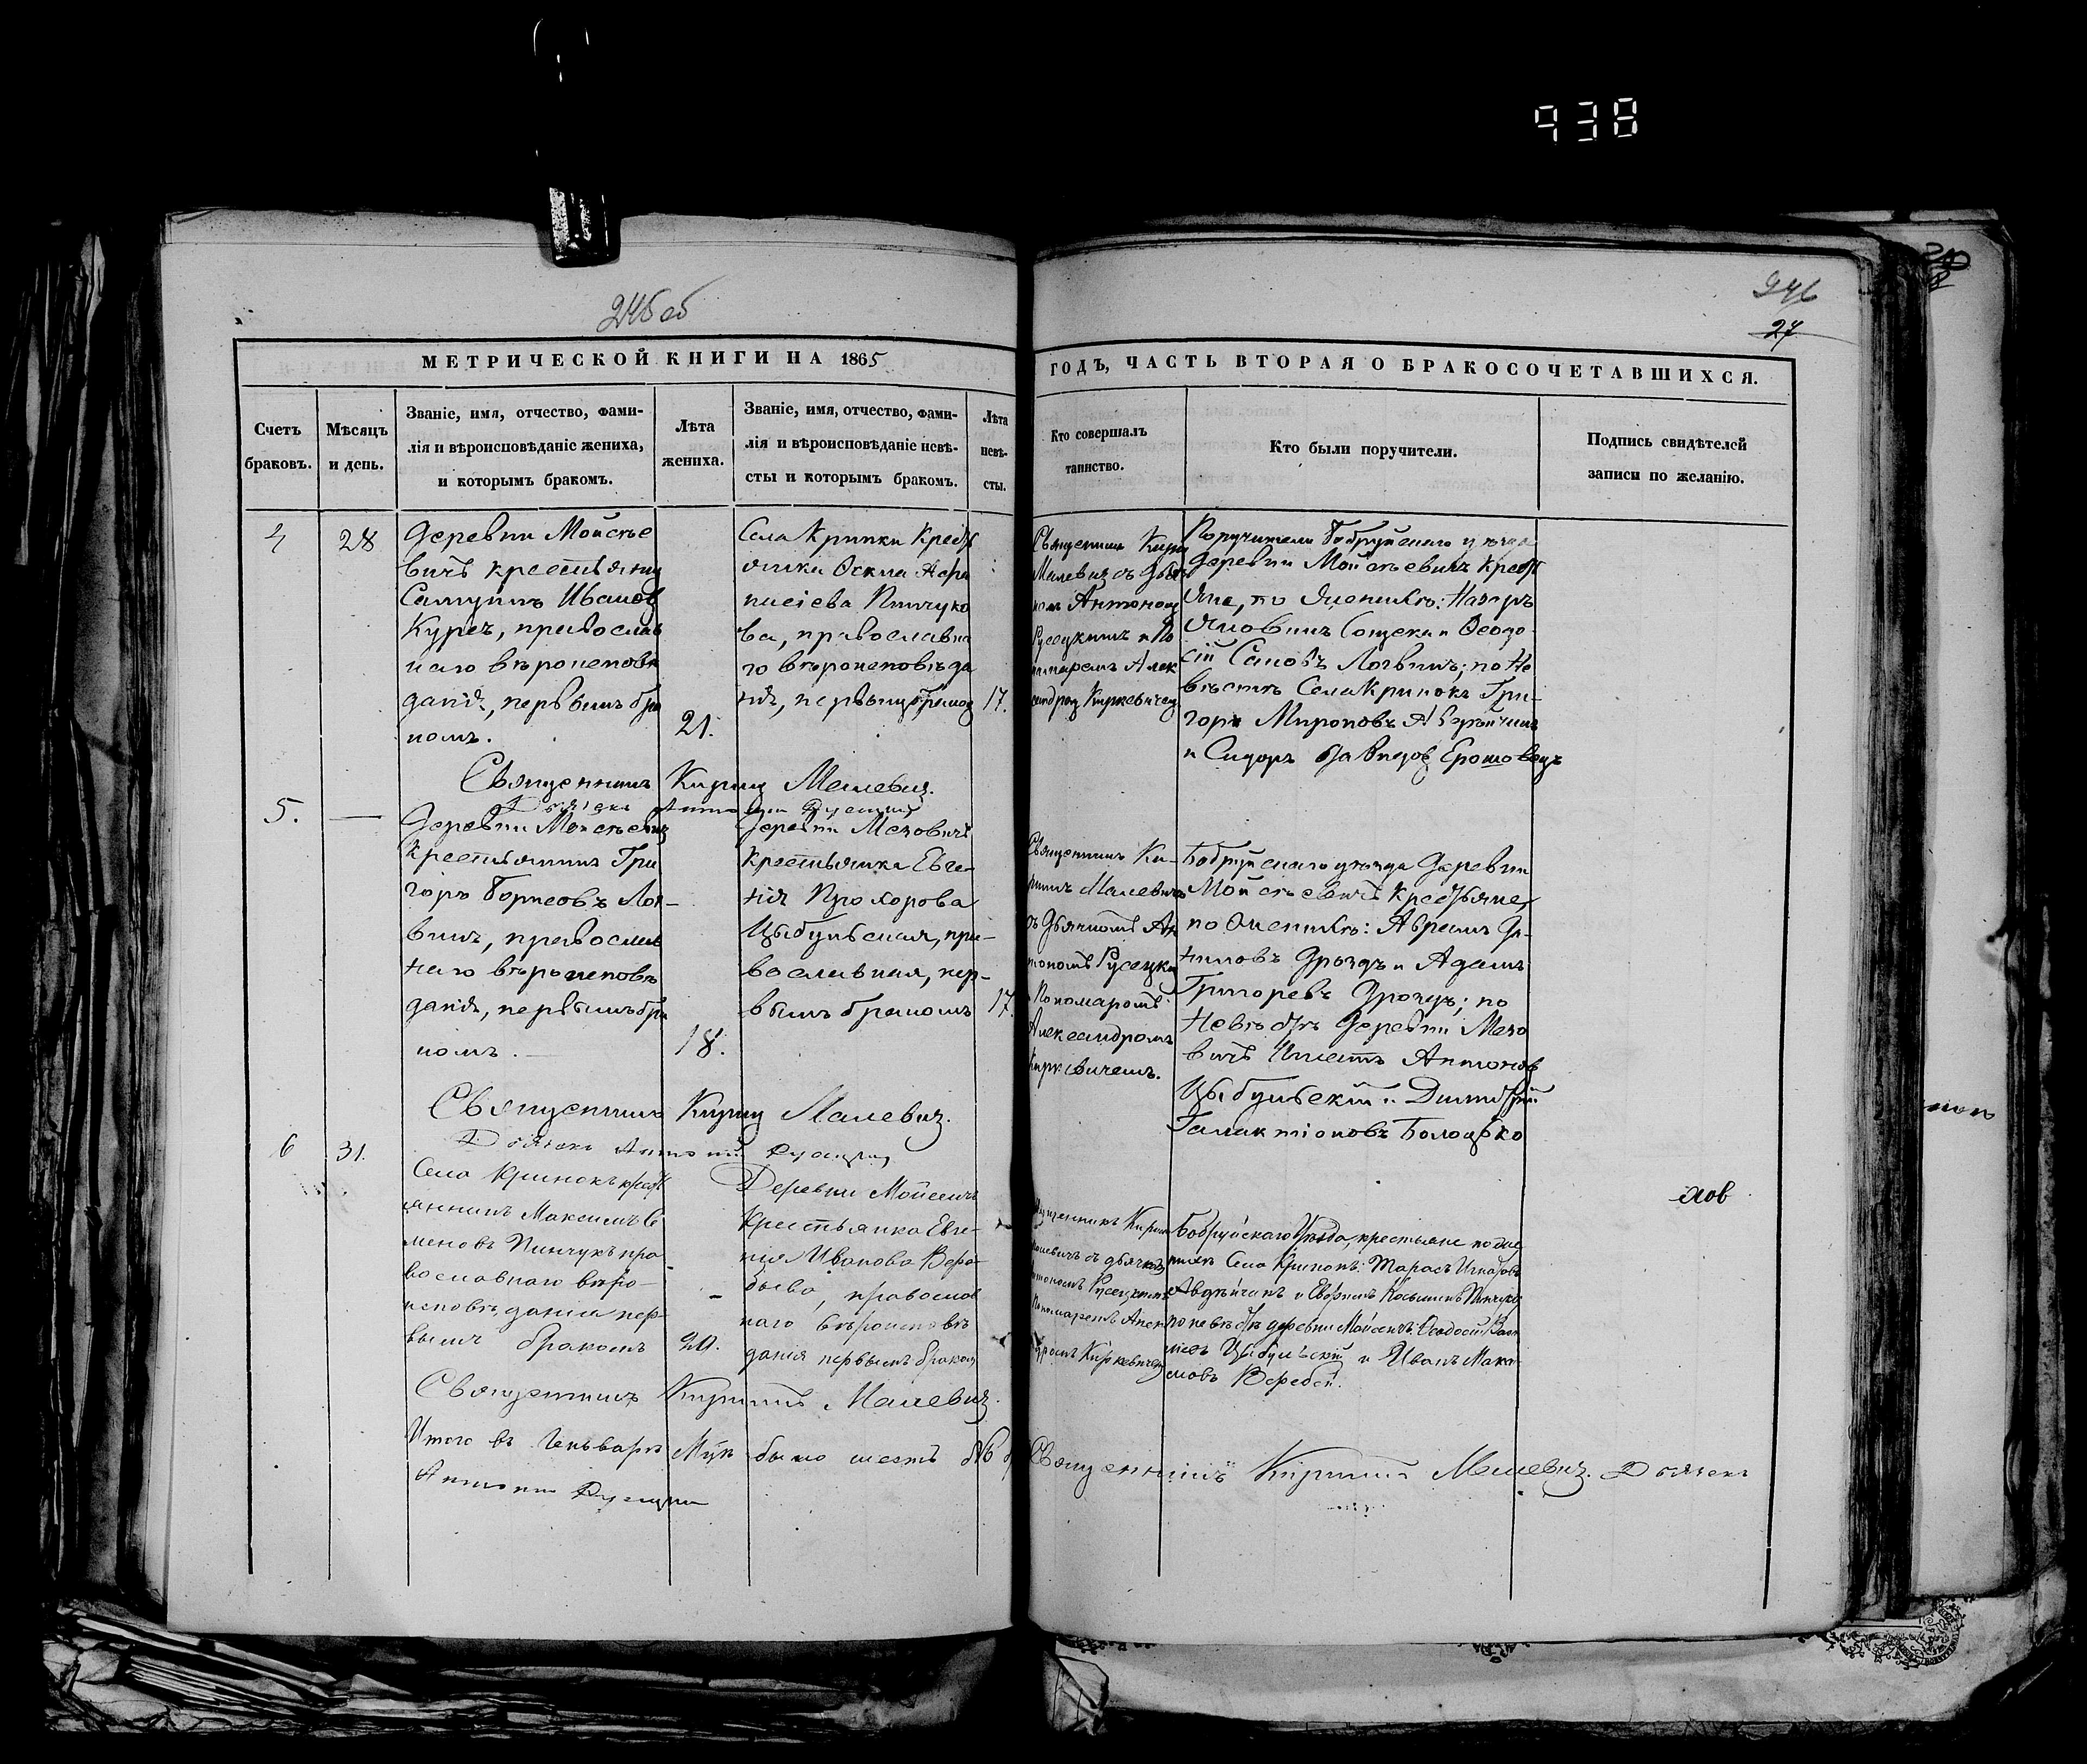 938
245 об
246
27
МЕТРИЧЕСКОЙ КНИГИ НА 1865
ГОДЪ, ЧАСТЬ ВТОРАЯ О БРАКОСОЧЕТАВШИХСЯ.
Счетъ браковъ.
Мѣсяцъ и день.
Званіе, имя, отчество, фами-
лія и вѣроисповѣданіе жениха,
и которымъ бракомъ.
Лѣта жениха.
Званіе, имя, отчество, фами-
лія и вѣроисповѣданіе невѣ-
сты и которымъ бракомъ.
Лѣта невѣ-
сты.
Кто совершалъ
таинство.
Кто были поручители.
Подпись свидѣтелей
записи по желанію.
4
28
деревни Мойсѣе
вичъ крестьянин
Самуилъ Иванов
Курсъ, православ
наго вѣроисповѣ
данія, первымъ бра
комъ.
21.
Села Кринки Крест
янка
Пинчуко
ва, православна
го вѣроисповѣда
нія, первымъ браком
17.
Священникъ Кирил
Малевич съ дьяч
ком Антоном
Русецкимъ и По
номаремъ Алек
сандром Киркевичем
Поручители Бобруйскаго уѣзда
деревни Мойсѣевичъ Крест
яне, по женихѣ: Назаръ
Логвинъ; по Не
вѣстѣ Села Кринокъ Гри-
гори Мироновъ
и Сидоръ
Священникъ Кирилъ Малевич.
Дьячекъ Антоній Русецкій
5.
—
Деревни Мойсѣевич
Крестьянинъ Гри
горъ Борисовъ Лог-
винъ, православ
наго вѣроисповѣ
данія, первымъ бра
комъ.
18.
деревни Мезовичъ
крестьянка Евге-
нія Прохорова
Цыбульская, пра-
вославная, пер-
вымъ бракомъ
17.
Священникъ Ки-
рилъ Малевичъ
съ Дьячкомъ Ан
тономъ Русецки
Пономаромъ
Александромъ
Киркевичемъ.
Бобруйскаго уѣзда деревни
Мойсѣевичъ Крестьяне,
по Женихѣ: Абрамъ Да-
ниловъ Дроздъ и Адамъ
Григорьевъ Дроздъ; по
Невѣстѣ деревни Мезо
вичъ Игнатъ Антонов
Цыбульскій и Димитрій
Галактіоновъ Болотко
Священникъ Кирилъ Малевич.
Дьячекъ Антоній Русецкій
6
31.
Села Кринокъ крест
янинъ Максимъ Се
меновъ Пинчукъ пра
вославнаго вѣро-
исповѣданія пер-
вымъ бракомъ
20.
Деревни Мойсеичъ
Крестьянка Евге-
нія Иванова Вера-
бьева, православ
наго вѣроисповѣ
данія первымъ браком
Священникъ Кирил
Малевичъ съ дьячком
Антономъ Русецкимъ
Пономаремъ Алекс
андромъ Киркевичем
Бобруйскаго Уѣзда, крестьяне по же
нихѣ Села Кринокъ: Тарасъ Игнатов
Авдѣйчикъ и Ефремъ Косьминъ Пинчук
по невѣстѣ деревни Мойсеичъ: Ѳеодосій
Цыбульскій и Иванъ Мака
ровъ Веребей.
Священникъ Кирилъ Малевич.
Итого въ Генварѣ М-цѣ было шесть № 6
Священникъ Кирилъ Малевич. Дьячекъ
Антоній Русецкій